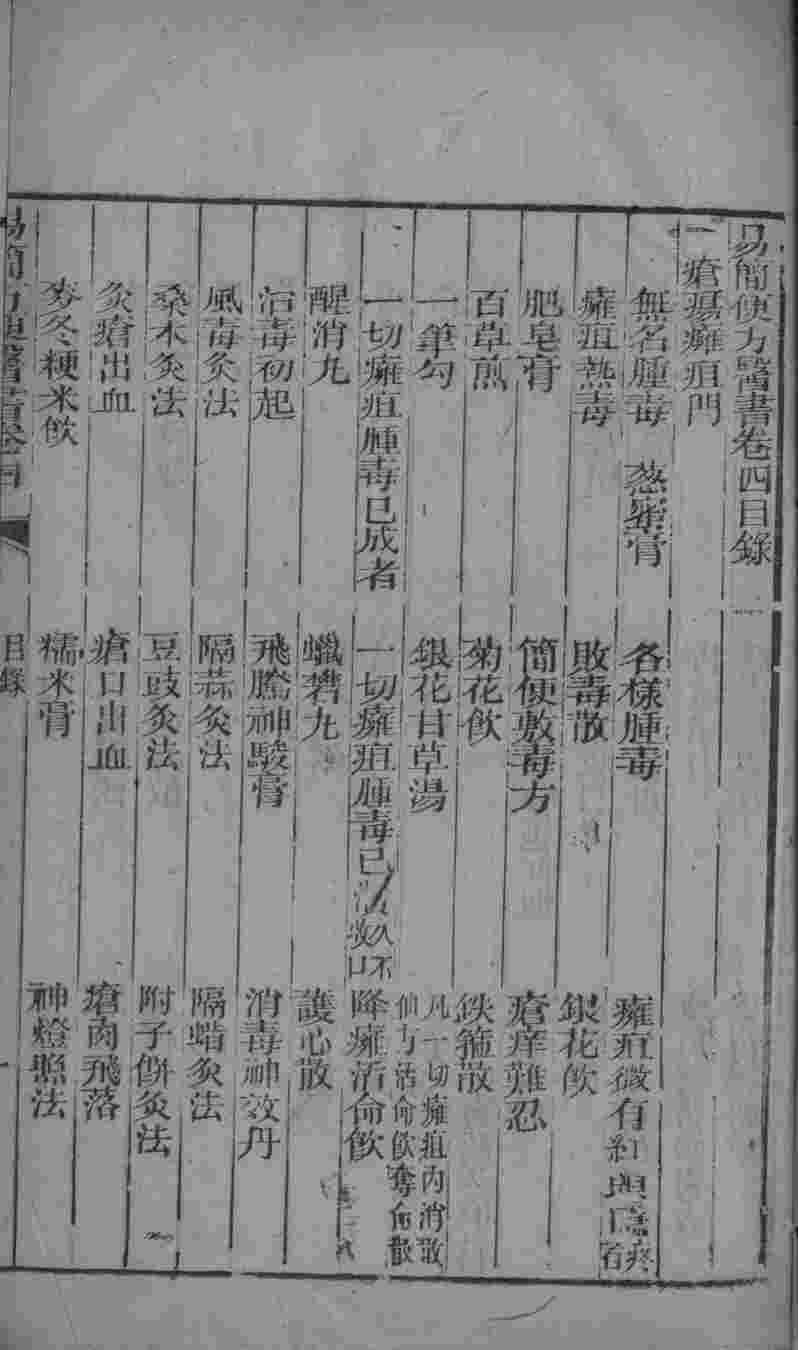 易簡便方醫書卷四目錄
一瘡瘍癰疽門
無名腫毒 葱蜜膏 各樣腫毒 癰疽微有紅與
癰疽熱毒 敗毒散 銀花飲
肥皂膏 簡便敷毒方 瘡痒難忍
百草煎 菊花飲 鉄箍散
一筆勾 銀花甘草湯 凡一切癰疽內消散 仙方活命飲 奪命散
一切癰疽腫毒已成者 一切癰疽腫毒已潰久不收口 降癰活命飲
醒消丸 蠟礬丸 護心散
治毒初起 飛騰神駿膏 消毒神效丹
風毒灸法 隔蒜灸法 隔蜡灸法
桑木灸法 豆豉灸法 附子餅灸法
灸瘡出血 瘡口出血 瘡肉飛落
麥冬粳米飲 糯米膏 神燈照法
易簡方便醫書卷四 目錄